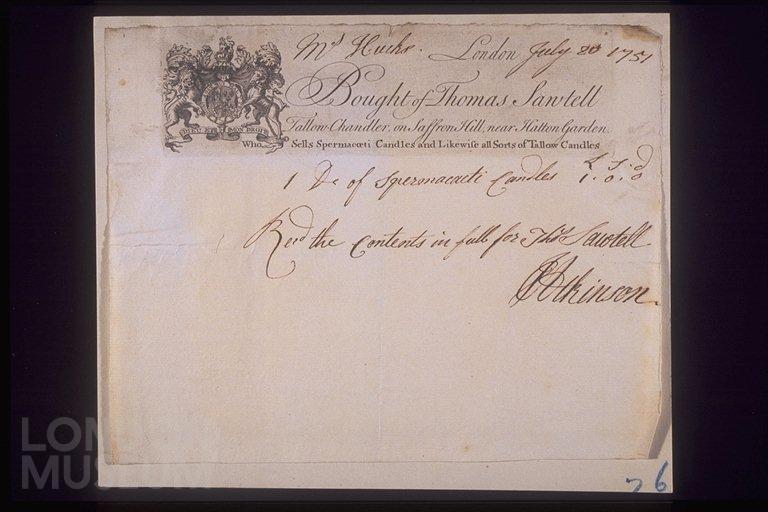 Mrs Hucks. London July 20 1751
Bought of Thomas Sawtell
Tallow Chandler, on Saffron Hill, near Hatton Garden.
DIEU ET MON DROIT
Who Sells Spermacœti Candles and Likewiſe all Sorts of Tallow Candles
£ s d
1 Dz of Spermacaeti Candles 1. 0. 0
Recd the Contents in full for Thos Sawtell
Atkinson
LONDON
MUSEUM
26